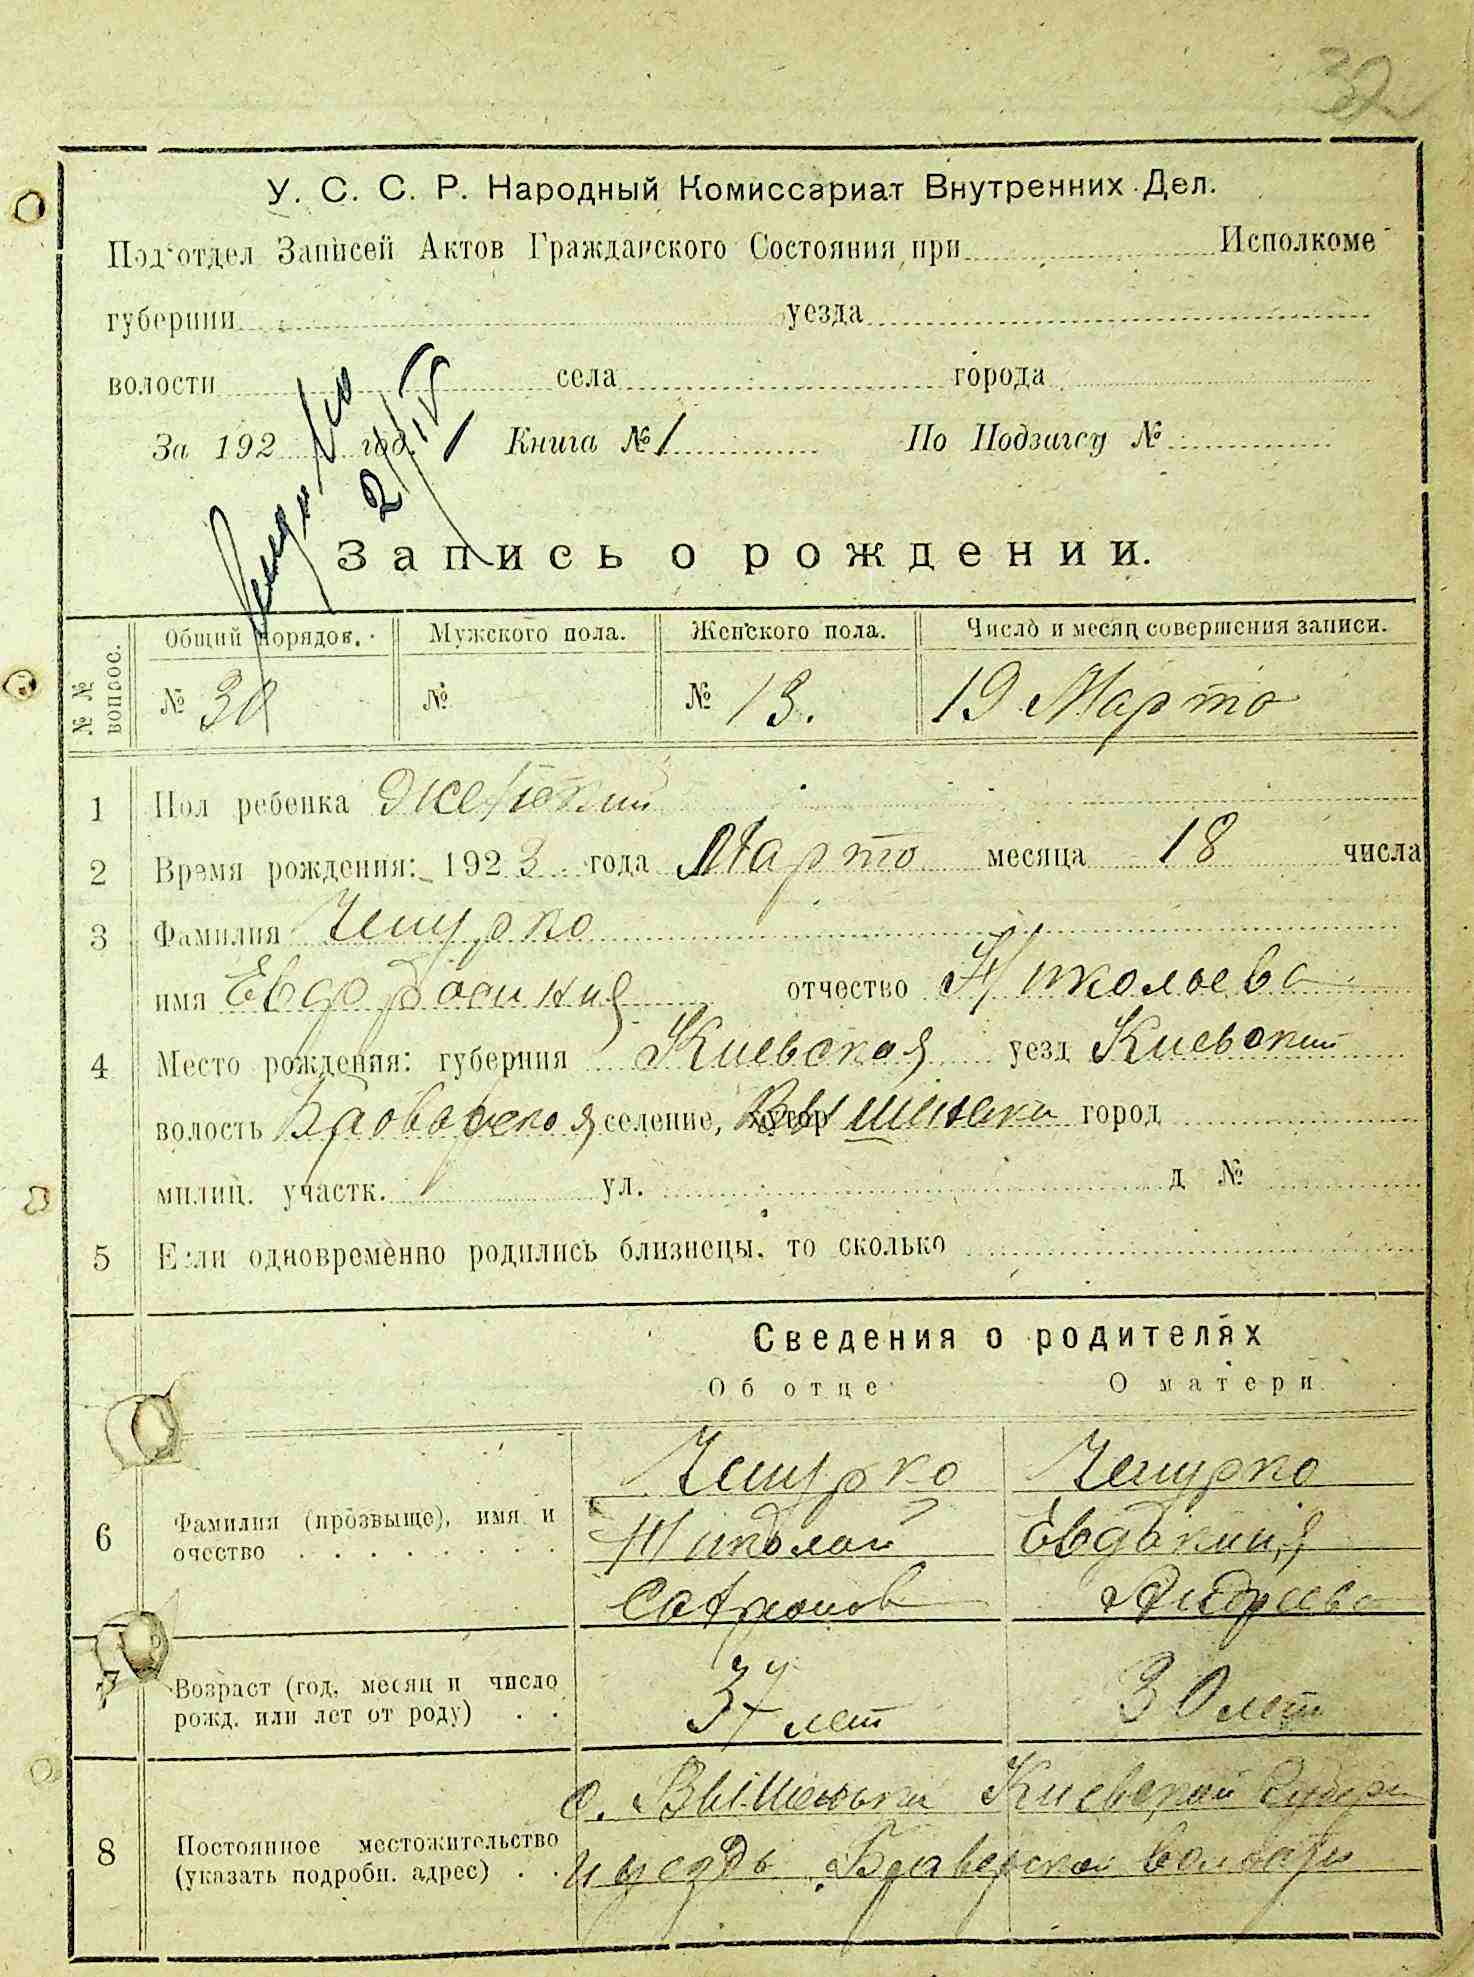 32
У. С. С. Р. Народный Комиссариат Внутренних Дел.
Подотдел Записей Актов Гражданского Состояния при Исполкоме
губернии уезда
волости села города
2/IV
За 192 год. 1 Книга № 1 По Подзагсу №
Запись о рождении.
№ № вопрос. Общий порядов. Мужского пола. Женского пола. Число и месяц совершения записи.
№ 30 № № 13. 19 Марта
1 Пол ребенка Женский
2 Время рождения: 1923 года Марта месяца 18 числа
3 Фамилия Чемурко
имя Евфросиния отчество Николаева
4 Место рождения: губерния Киевская уезд Киевский
волость Броварская селение, хутор Вышеньки город
милиц. участк. ул. д №
5 Если одновременно родились близнецы, то сколько
Сведения о родителях
Об отце О матери
Чемурко Чемурко
6 Фамилия (прозвыще), имя и Николай Евдокия
очество Андреева
7 Возраст (год, месяц и число
рожд. или лет от роду) 37 лет 30 лет
с. Вышеньки Киевской губерн
8 Постоянное местожительство
(указать подробн. адрес) и уезда Броверской волости